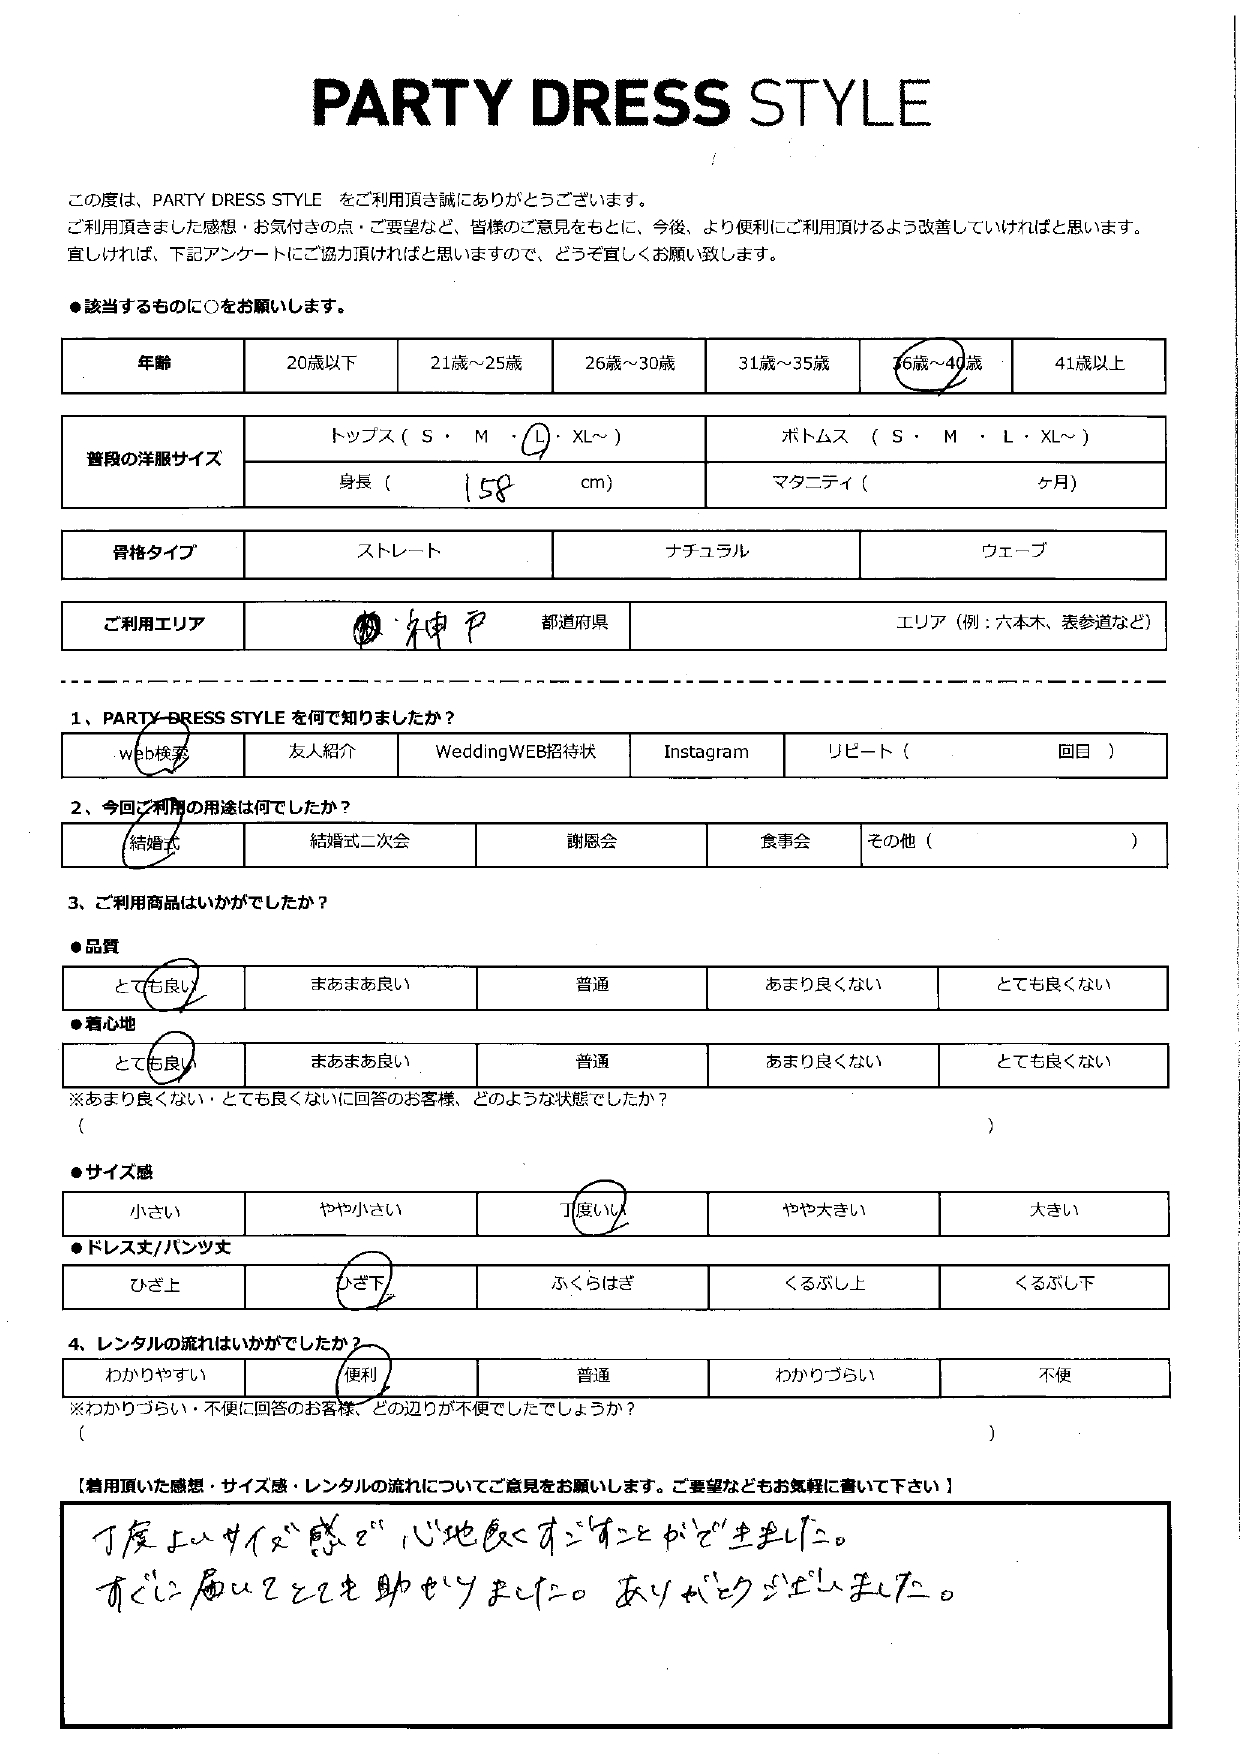 PARTY DRESS STYLE
この度は、PARTY DRESS STYLE をご利用頂き誠にありがとうございます。
ご利用頂きました感想・お気付きの点・ご要望など、皆様のご意見をもとに、今後、より便利にご利用頂けるよう改善していければと思います。
宜しければ、下記アンケートにご協力頂ければと思いますので、どうぞ宜しくお願い致します。
●該当するものに○をお願いします。
年齢 20歳以下 21歳～25歳 26歳～30歳 31歳～35歳 36歳～40歳 41歳以上
普段の洋服サイズ
トップス ( S ・ M ・ L ・ XL～ ) ボトムス ( S ・ M ・ L ・ XL～ )
身長 ( 158 cm) マタニティ ( ヶ月)
骨格タイプ ストレート ナチュラル ウェーブ
ご利用エリア 神戸 都道府県 エリア（例：六本木、表参道など）
1、PARTY DRESS STYLE を何で知りましたか？
web検索 友人紹介 WeddingWEB招待状 Instagram リピート ( 回目 )
2、今回ご利用の用途は何でしたか？
結婚式 結婚式二次会 謝恩会 食事会 その他 ( )
3、ご利用商品はいかがでしたか？
●品質
とても良い まあまあ良い 普通 あまり良くない とても良くない
●着心地
とても良い まあまあ良い 普通 あまり良くない とても良くない
※あまり良くない・とても良くないに回答のお客様、どのような状態でしたか？
( )
●サイズ感
小さい やや小さい 丁度いい やや大きい 大きい
●ドレス丈/パンツ丈
ひざ上 ひざ下 ふくらはぎ くるぶし上 くるぶし下
4、レンタルの流れはいかがでしたか？
わかりやすい 便利 普通 わかりづらい 不便
※わかりづらい・不便に回答のお客様、どの辺りが不便でしたでしょうか？
( )
【着用頂いた感想・サイズ感・レンタルの流れについてご意見をお願いします。ご要望などもお気軽に書いて下さい】
丁度よいサイズ感で心地良くすごすことができました。
すぐに届いてとても助かりました。ありがとうございました。